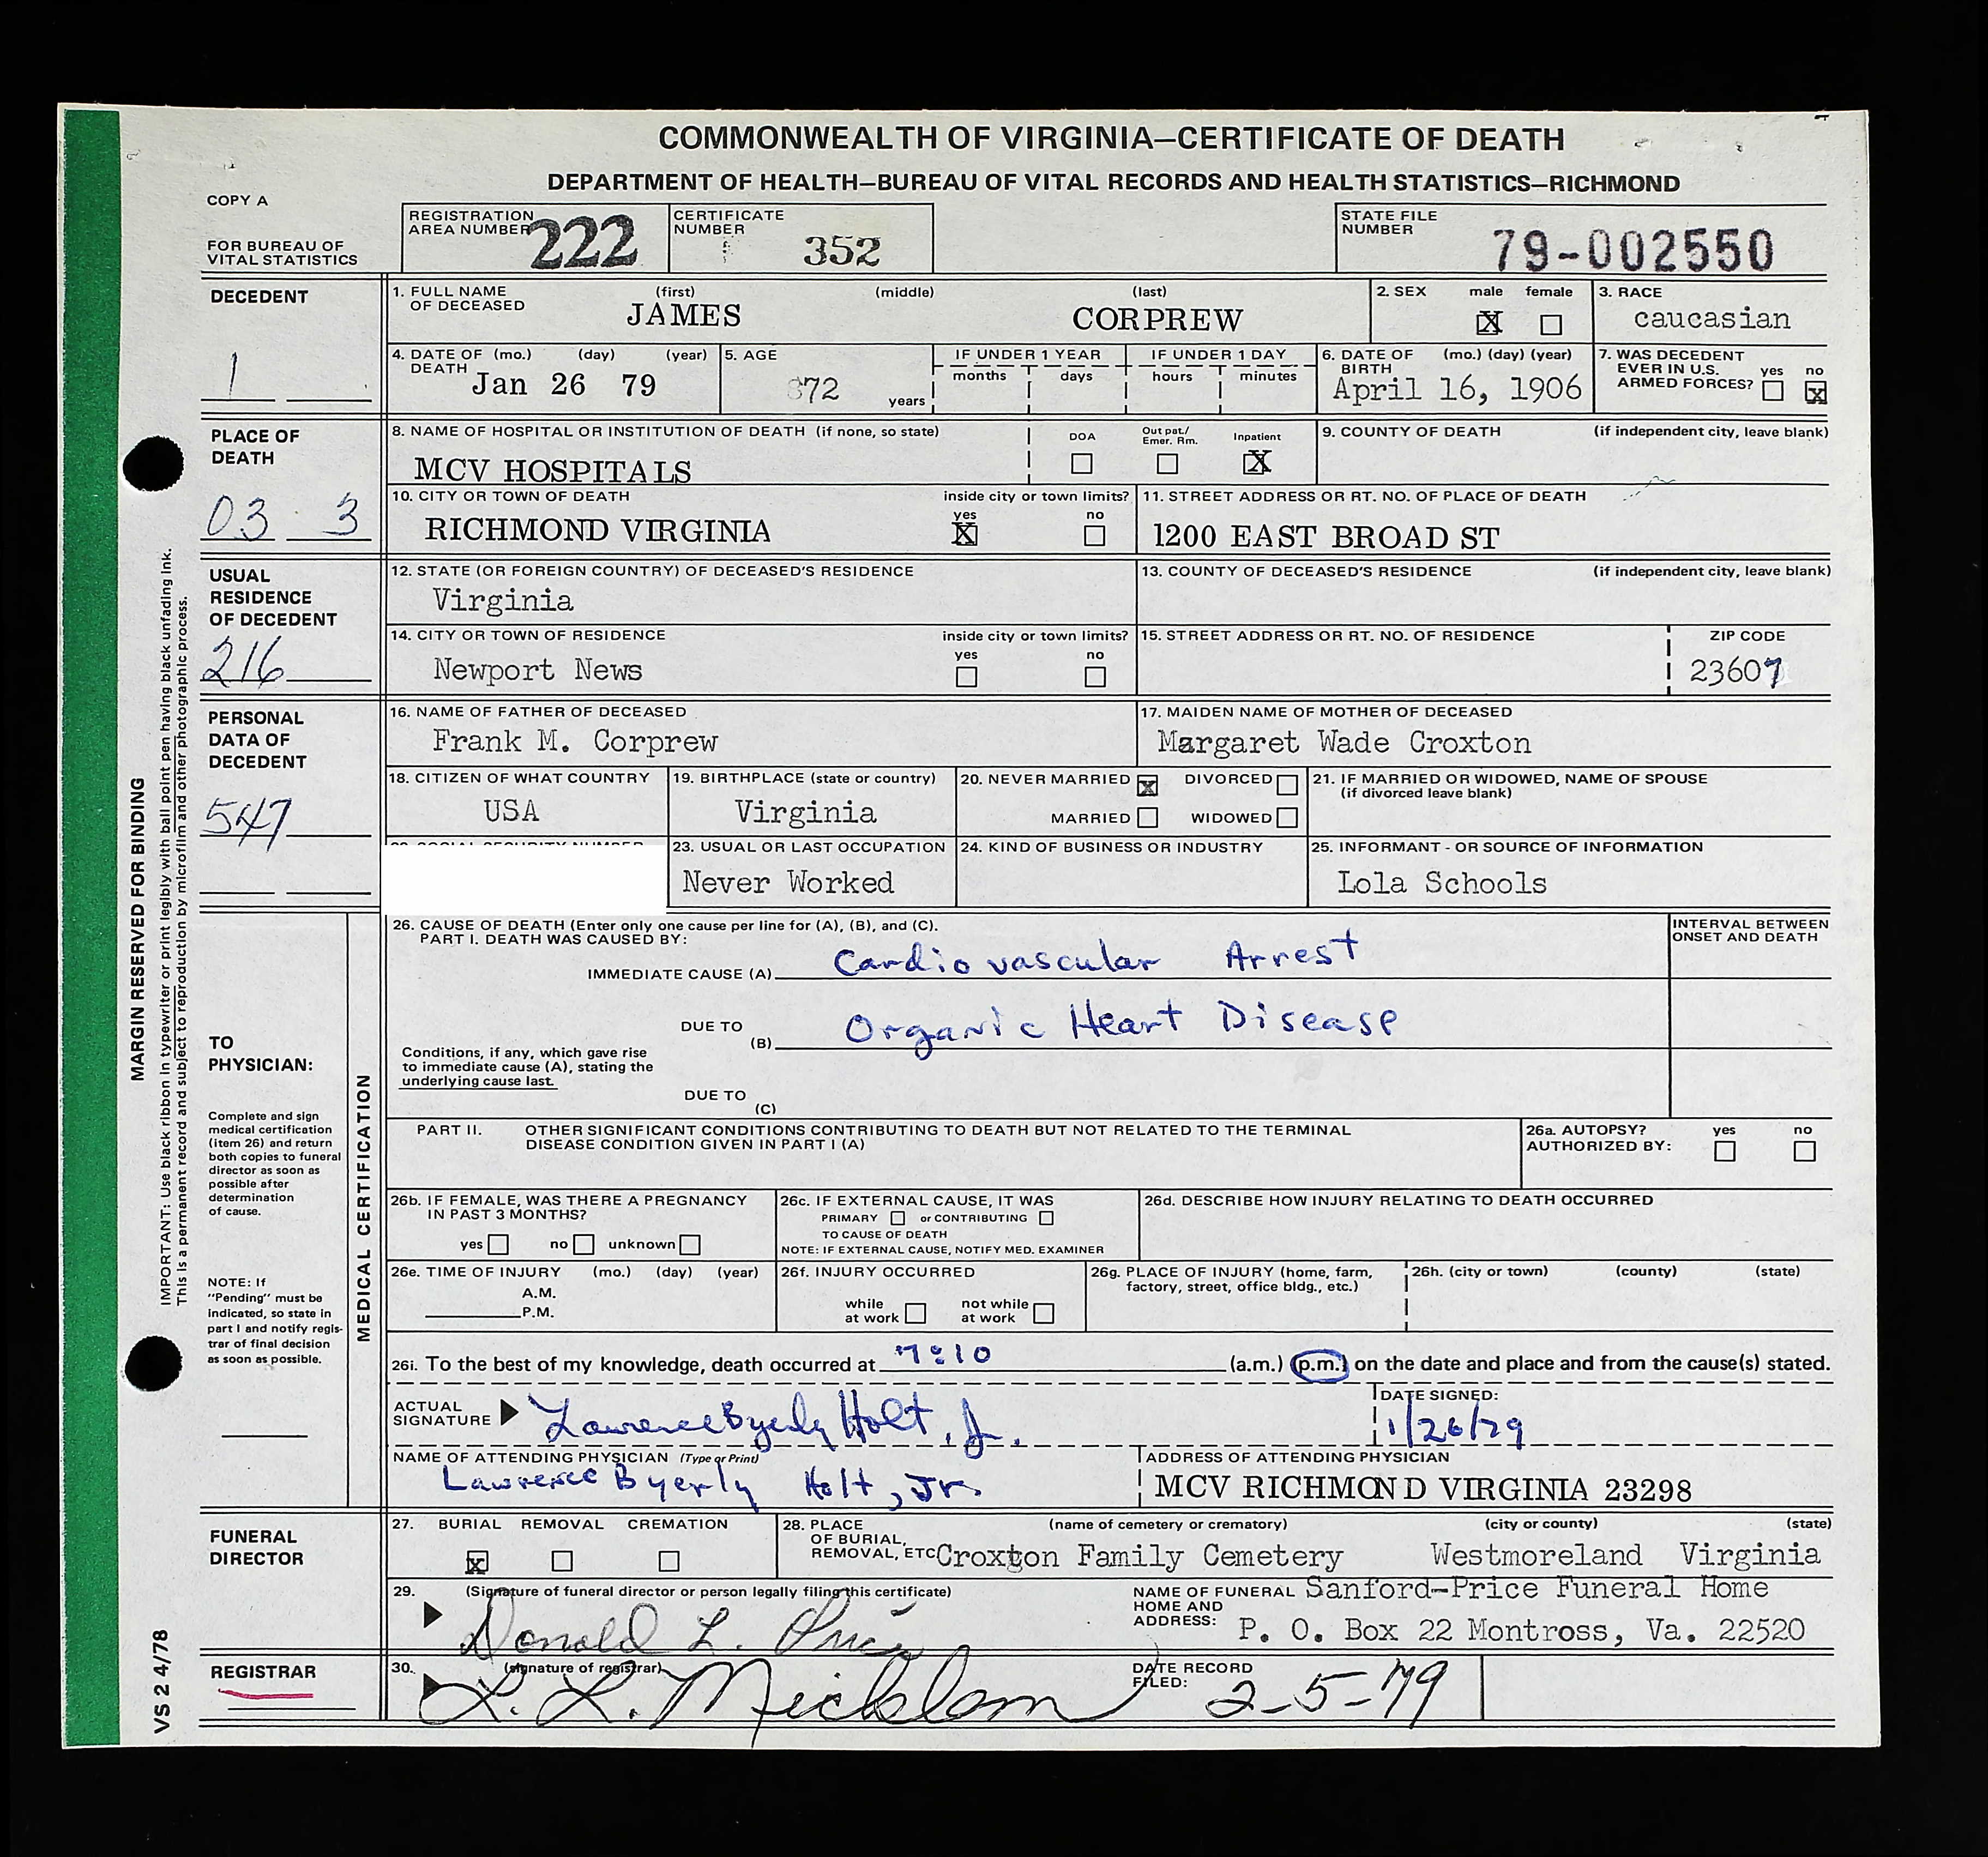 COMMONWEALTH OF VIRGINIA—CERTIFICATE OF DEATH
DEPARTMENT OF HEALTH—BUREAU OF VITAL RECORDS AND HEALTH STATISTICS—RICHMOND
COPY A
FOR BUREAU OF
VITAL STATISTICS
REGISTRATION
AREA NUMBER 222
CERTIFICATE
NUMBER 352
STATE FILE
NUMBER 79-002550
DECEDENT
1
1. FULL NAME OF DECEASED (first) (middle) (last)
JAMES CORPREW
2. SEX male female
X
3. RACE
caucasian
4. DATE OF DEATH (mo.) (day) (year)
Jan 26 79
5. AGE
72 years
IF UNDER 1 YEAR
months days
IF UNDER 1 DAY
hours minutes
6. DATE OF BIRTH (mo.) (day) (year)
April 16, 1906
7. WAS DECEDENT EVER IN U.S. ARMED FORCES? yes no
x
PLACE OF
DEATH
03 3
8. NAME OF HOSPITAL OR INSTITUTION OF DEATH (if none, so state)
MCV HOSPITALS
DOA Out pat./ Emer. Rm. Inpatient
X
9. COUNTY OF DEATH (if independent city, leave blank)
10. CITY OR TOWN OF DEATH inside city or town limits?
yes no
RICHMOND VIRGINIA X
11. STREET ADDRESS OR RT. NO. OF PLACE OF DEATH
1200 EAST BROAD ST
USUAL
RESIDENCE
OF DECEDENT
216
12. STATE (OR FOREIGN COUNTRY) OF DECEASED'S RESIDENCE
Virginia
13. COUNTY OF DECEASED'S RESIDENCE (if independent city, leave blank)
14. CITY OR TOWN OF RESIDENCE inside city or town limits?
yes no
Newport News
15. STREET ADDRESS OR RT. NO. OF RESIDENCE
ZIP CODE
23607
PERSONAL
DATA OF
DECEDENT
547
16. NAME OF FATHER OF DECEASED
Frank M. Corprew
17. MAIDEN NAME OF MOTHER OF DECEASED
Margaret Wade Croxton
18. CITIZEN OF WHAT COUNTRY
USA
19. BIRTHPLACE (state or country)
Virginia
20. NEVER MARRIED x DIVORCED
MARRIED WIDOWED
21. IF MARRIED OR WIDOWED, NAME OF SPOUSE
(if divorced leave blank)
23. USUAL OR LAST OCCUPATION
Never Worked
24. KIND OF BUSINESS OR INDUSTRY
25. INFORMANT - OR SOURCE OF INFORMATION
Lola Schools
MARGIN RESERVED FOR BINDING
IMPORTANT: Use black ribbon in typewriter or print legibly with ball point pen having black unfading ink.
This is a permanent record and subject to reproduction by microfilm and other photographic process.
TO
PHYSICIAN:
Complete and sign
medical certification
(item 26) and return
both copies to funeral
director as soon as
possible after
determination
of cause.
NOTE: If
"Pending" must be
indicated, so state in
part I and notify regis-
trar of final decision
as soon as possible.
MEDICAL CERTIFICATION
26. CAUSE OF DEATH (Enter only one cause per line for (A), (B), and (C).
PART I. DEATH WAS CAUSED BY:
INTERVAL BETWEEN
ONSET AND DEATH
IMMEDIATE CAUSE (A) Cardiovascular Arrest
DUE TO
(B) Organic Heart Disease
Conditions, if any, which gave rise
to immediate cause (A), stating the
underlying cause last.
DUE TO
(C)
PART II. OTHER SIGNIFICANT CONDITIONS CONTRIBUTING TO DEATH BUT NOT RELATED TO THE TERMINAL
DISEASE CONDITION GIVEN IN PART I (A)
26a. AUTOPSY? yes no
AUTHORIZED BY:
26b. IF FEMALE, WAS THERE A PREGNANCY
IN PAST 3 MONTHS?
yes no unknown
26c. IF EXTERNAL CAUSE, IT WAS
PRIMARY or CONTRIBUTING
TO CAUSE OF DEATH
NOTE: IF EXTERNAL CAUSE, NOTIFY MED. EXAMINER
26d. DESCRIBE HOW INJURY RELATING TO DEATH OCCURRED
26e. TIME OF INJURY (mo.) (day) (year)
A.M.
P.M.
26f. INJURY OCCURRED
while at work not while at work
26g. PLACE OF INJURY (home, farm,
factory, street, office bldg., etc.)
26h. (city or town) (county) (state)
26i. To the best of my knowledge, death occurred at 7:10 (a.m.) (p.m.) on the date and place and from the cause(s) stated.
ACTUAL
SIGNATURE Lawrence Byerly Holt, Jr.
DATE SIGNED:
1/26/79
NAME OF ATTENDING PHYSICIAN (Type or Print)
Lawrence Byerly Holt, Jr.
ADDRESS OF ATTENDING PHYSICIAN
MCV RICHMOND VIRGINIA 23298
FUNERAL
DIRECTOR
27. BURIAL REMOVAL CREMATION
x
28. PLACE OF BURIAL, REMOVAL, ETC (name of cemetery or crematory) (city or county) (state)
Croxton Family Cemetery Westmoreland Virginia
29. (Signature of funeral director or person legally filing this certificate)
Donald L. Price
NAME OF FUNERAL HOME AND ADDRESS:
Sanford-Price Funeral Home
P. O. Box 22 Montross, Va. 22520
REGISTRAR
30. (signature of registrar)
L. L. Micklem
DATE RECORD
FILED: 2-5-79
VS 2 4/78